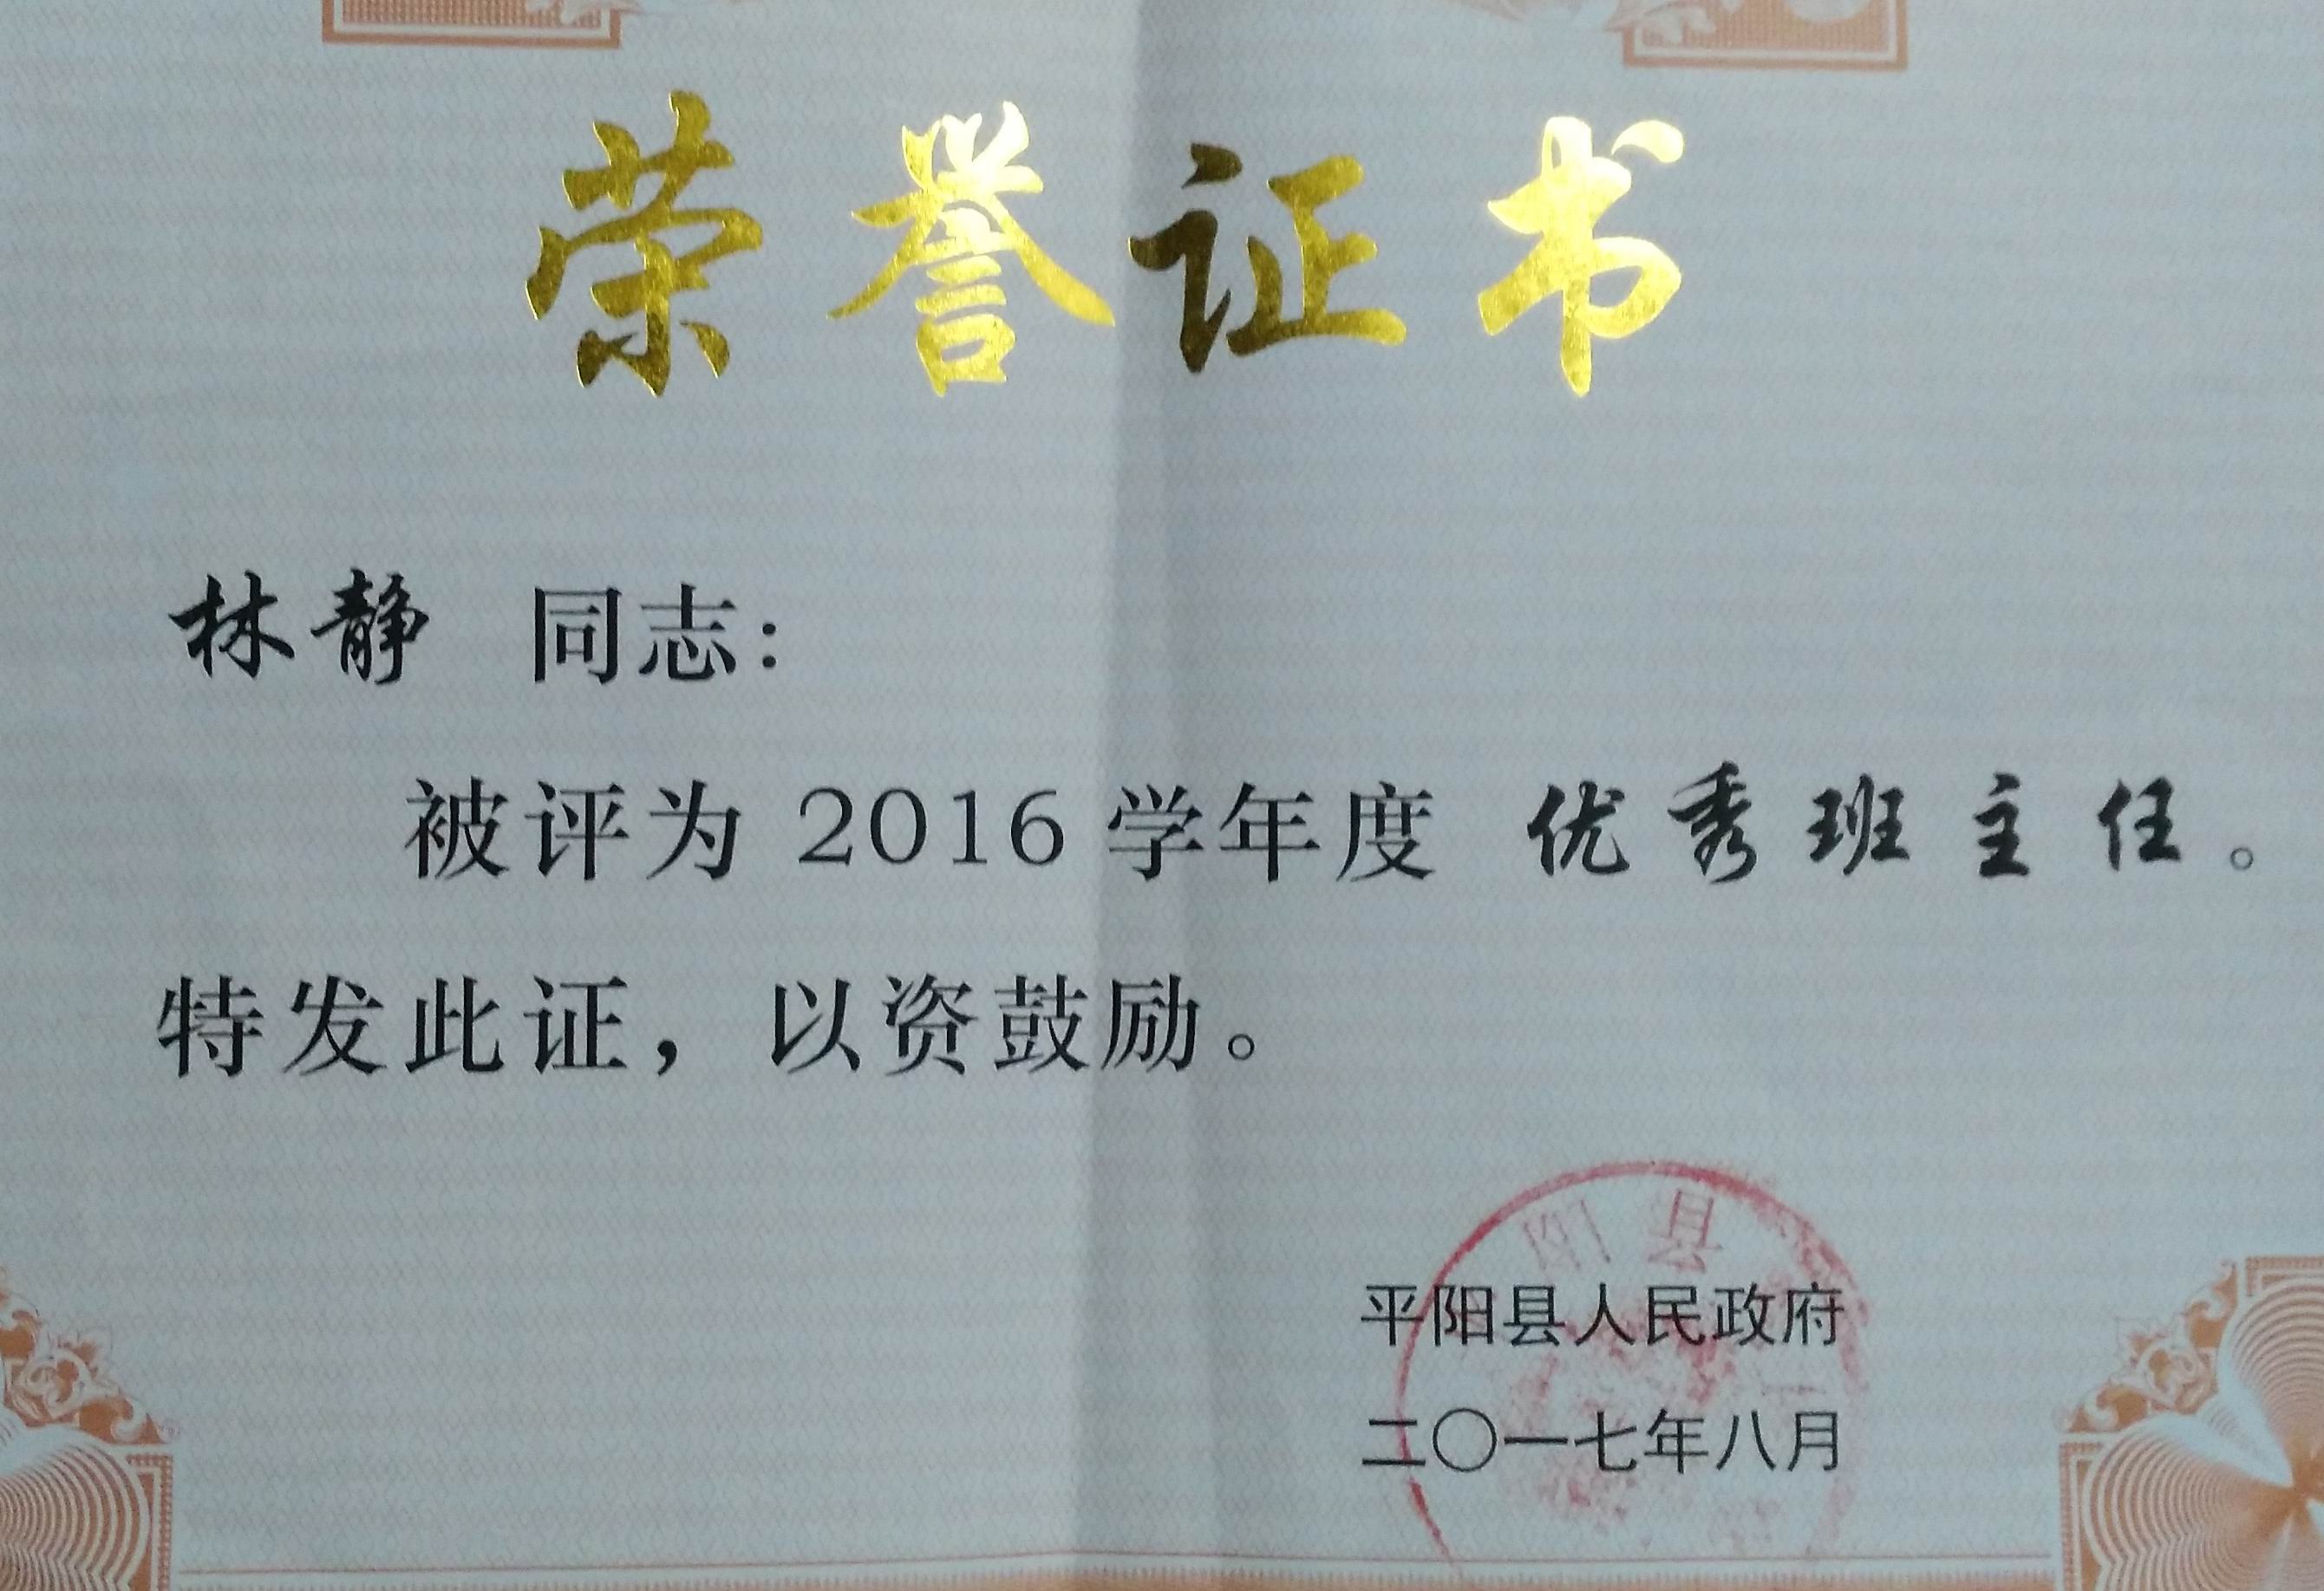 荣誉证书
林静 同志：
被评为 2016 学年度 优秀班主任。
特发此证，以资鼓励。
阳县
平阳县人民政府
二〇一七年八月